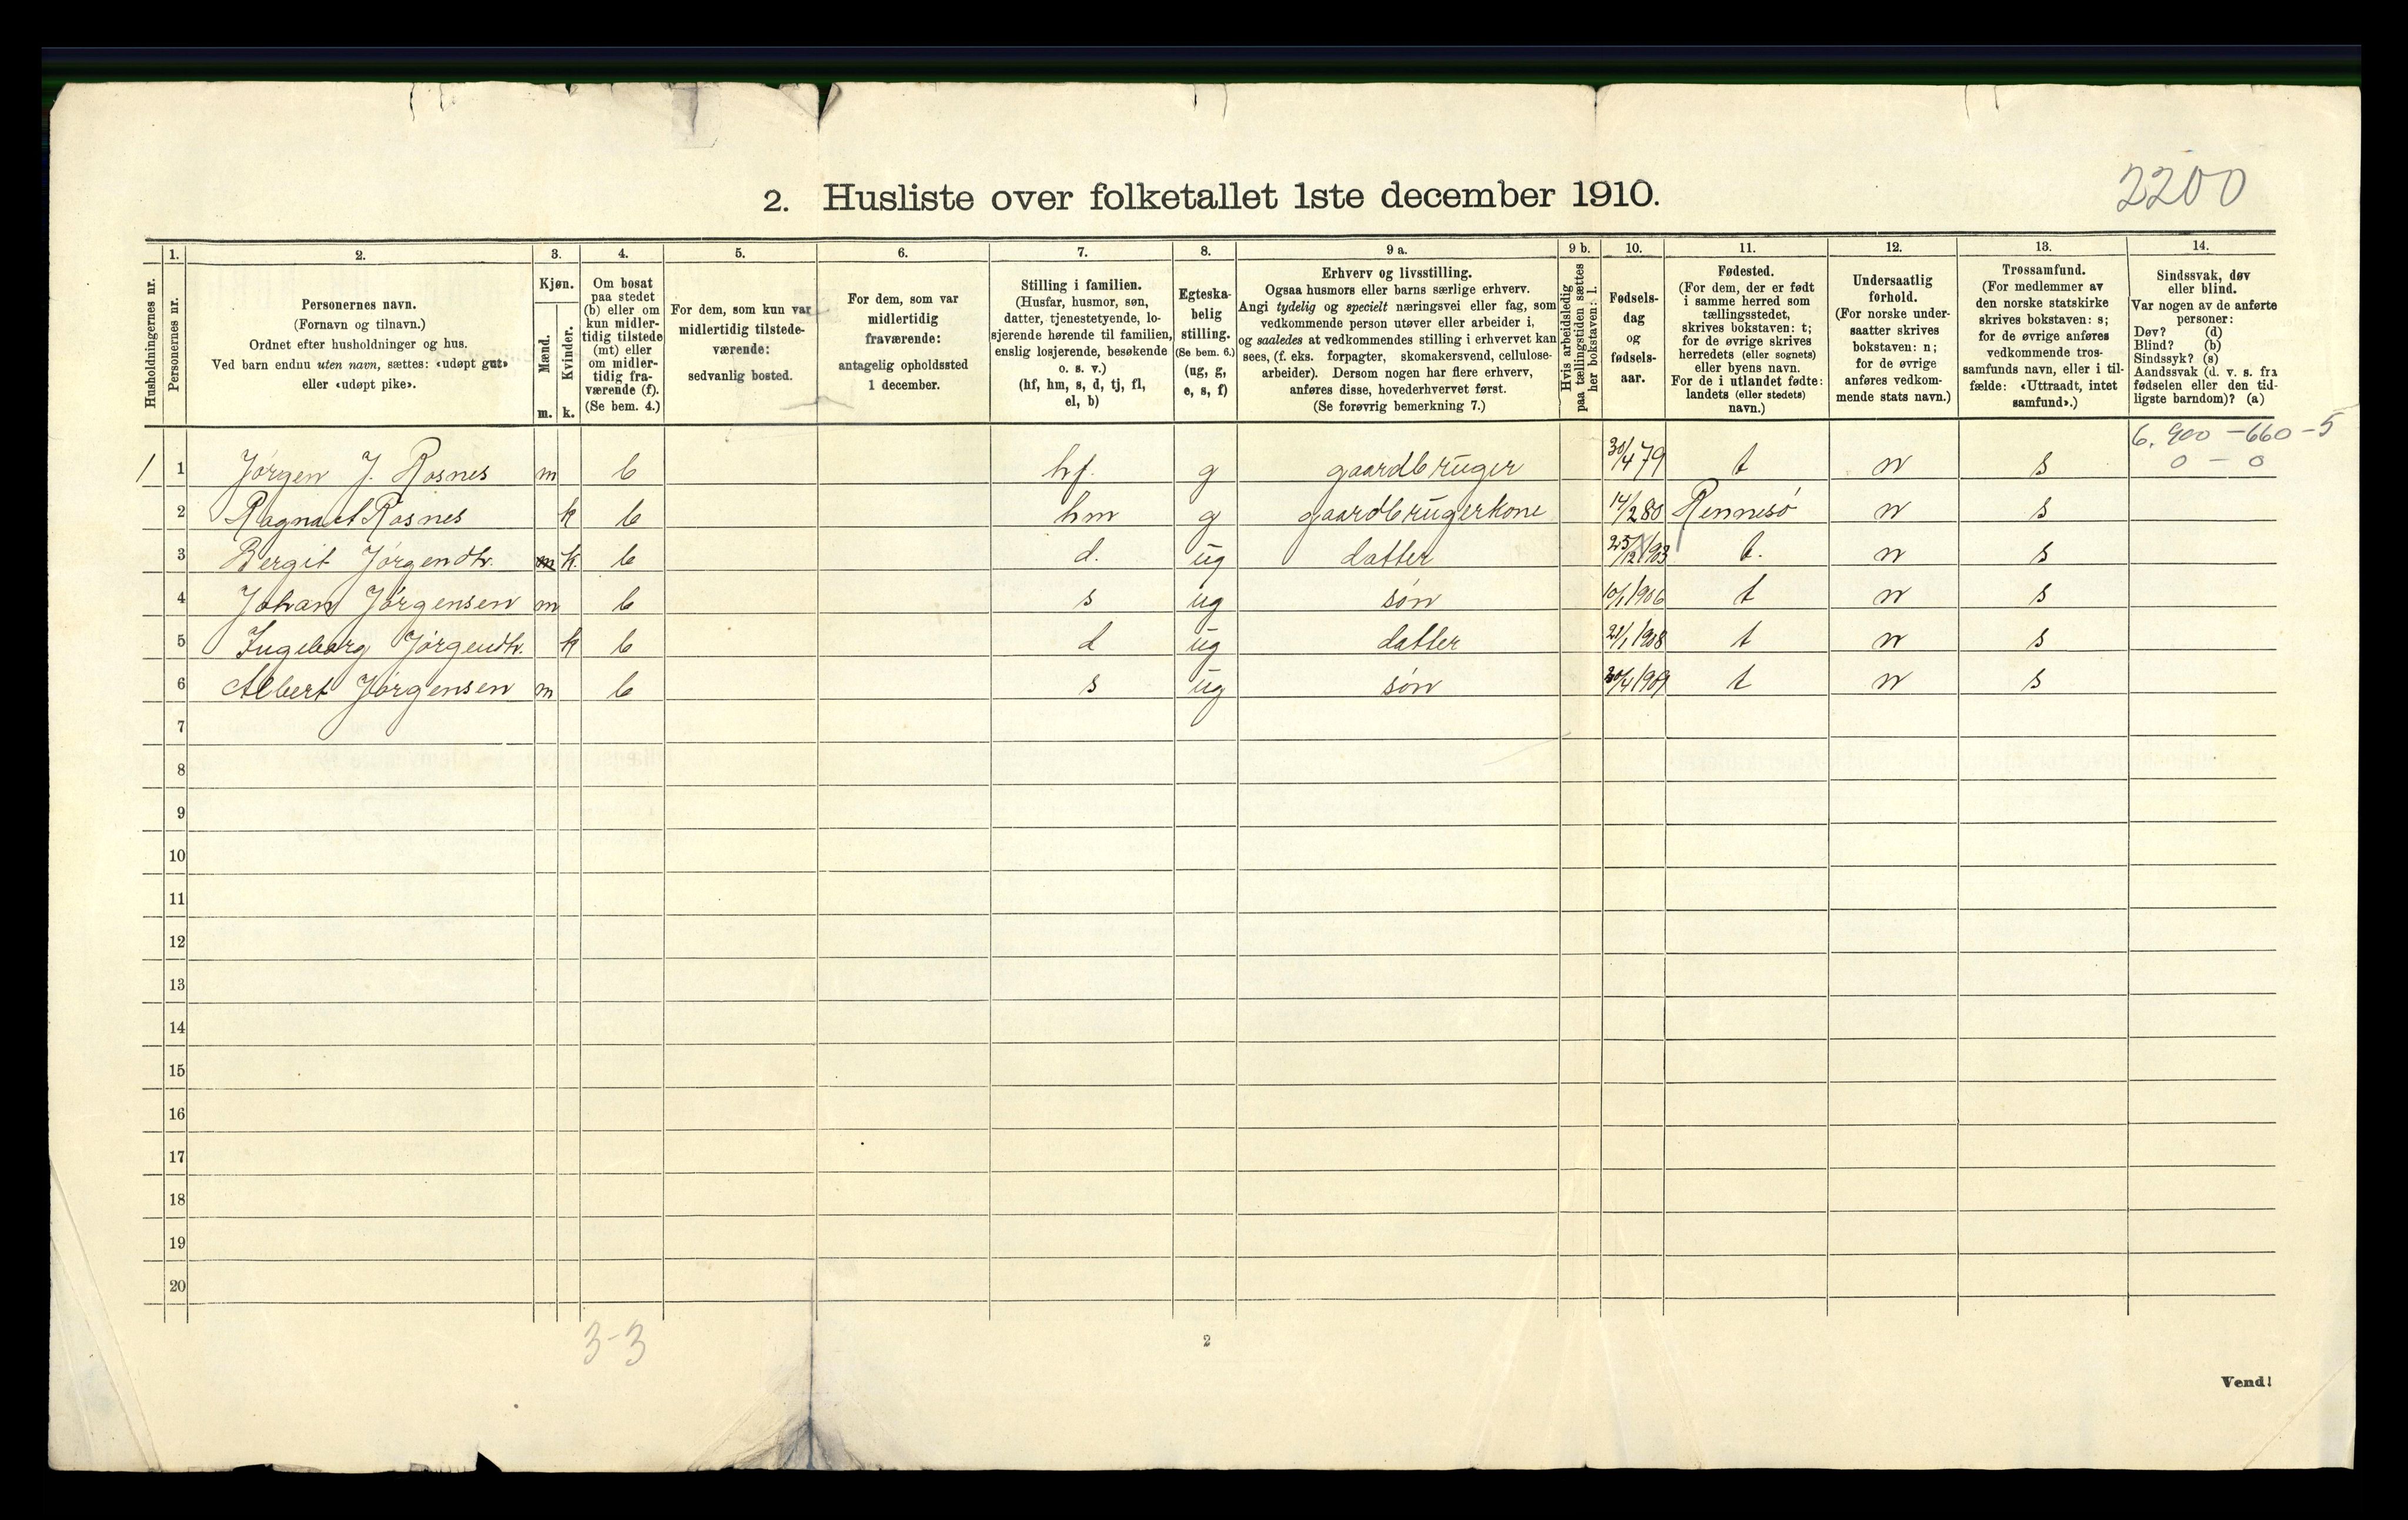 2200
2. Husliste over folketallet 1ste december 1910.
Husholdningernes nr.
1.
Personernes nr.
2.
Personernes navn.
(Fornavn og tilnavn.)
Ordnet efter husholdninger og hus.
Ved barn endnu uten navn, sættes: «udøpt gut»
eller «udøpt pike».
3.
Kjøn.
Mænd.
Kvinder.
m. k.
4.
Om bosat
paa stedet
(b) eller om
kun midler-
tidig tilstede
(mt) eller
om midler-
tidig fra-
værende (f).
(Se bem. 4.)
5.
For dem, som kun var
midlertidig tilstede-
værende:
sedvanlig bosted.
6.
For dem, som var
midlertidig
fraværende:
antagelig opholdssted
1 december.
7.
Stilling i familien.
(Husfar, husmor, søn,
datter, tjenestetyende, lo-
sjerende hørende til familien,
enslig losjerende, besøkende
o. s. v.)
(hf, hm, s, d, tj, fl,
el, b)
8.
Egteska-
belig
stilling.
(Se bem. 6.)
(ug, g,
e, s, f)
9 a.
Erhverv og livsstilling.
Ogsaa husmors eller barns særlige erhverv.
Angi tydelig og specielt næringsvei eller fag, som
vedkommende person utøver eller arbeider i,
og saaledes at vedkommendes stilling i erhvervet kan
sees, (f. eks. forpagter, skomakersvend, cellulose-
arbeider). Dersom nogen har flere erhverv,
anføres disse, hovederhvervet først.
(Se forøvrig bemerkning 7.)
9 b.
Hvis arbeidsledig
paa tællingstiden sættes
her bokstaven: l.
10.
Fødsels-
dag
og
fødsels-
aar.
11.
Fødested.
(For dem, der er født
i samme herred som
tællingsstedet,
skrives bokstaven: t;
for de øvrige skrives
herredets (eller sognets)
eller byens navn.
For de i utlandet fødte:
landets (eller stedets)
navn.)
12.
Undersaatlig
forhold.
(For norske under-
saatter skrives
bokstaven: n;
for de øvrige
anføres vedkom-
mende stats navn.)
13.
Trossamfund.
(For medlemmer av
den norske statskirke
skrives bokstaven: s;
for de øvrige anføres
vedkommende tros-
samfunds navn, eller i til-
fælde: «Uttraadt, intet
samfund».)
14.
Sindssvak, døv
eller blind.
Var nogen av de anførte
personer:
Døv? (d)
Blind? (b)
Sindssyk? (s)
Aandssvak (d. v. s. fra
fødselen eller den tid-
ligste barndom)? (a)
6. 900 - 660 - 5
0 - 0
1 1 Jørgen J. Rosnes m b hf. g gaardbruger 30/4 79 t n s
2 Ragna A Rosnes k b hm g gaardbrugerkone 14/2 80 Rennesø n s
3 Bergit Jørgendtr. m k. b d. ug datter 25/12 1903 t. n s
4 Johan Jørgensen m b s ug søn 10/1 1906 t n s
5 Ingeborg Jørgendtr. k b d ug datter 21/1 1908 t n s
6 Albert Jørgensen m b s ug søn 30/4 1909 t n s
7
8
9
10
11
12
13
14
15
16
17
18
19
20
3-3
2
Vend!